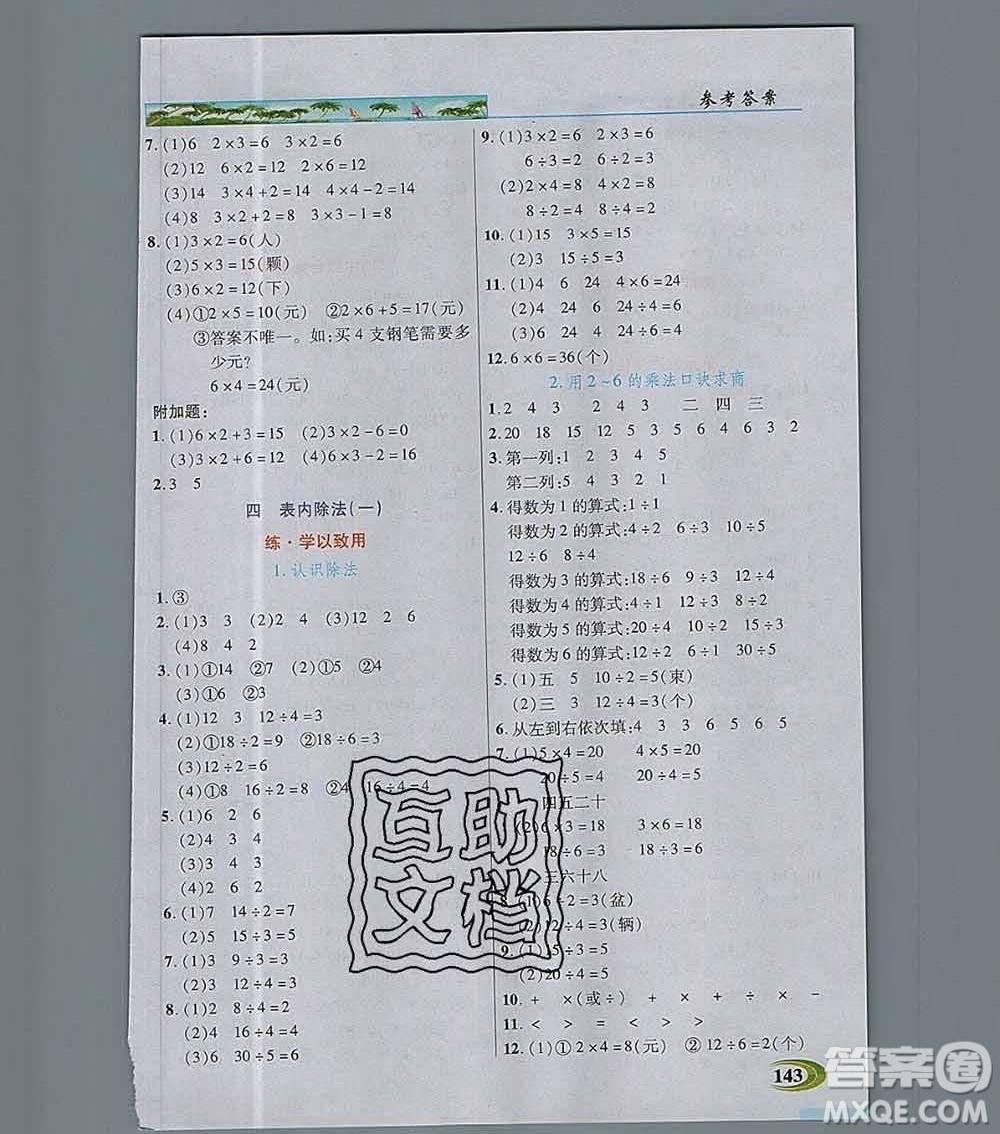 参考答案
7. (1)6 2×3=6 3×2=6
(2)12 6×2=12 2×6=12
(3)14 3×4+2=14 4×4-2=14
(4)8 3×2+2=8 3×3-1=8
8. (1)3×2=6(人)
(2)5×3=15(颗)
(3)6×2=12(下)
(4)①2×5=10(元) ②2×6+5=17(元)
③答案不唯一。如:买4支钢笔需要多
少元?
6×4=24(元)
附加题:
1. (1)6×2+3=15 (2)3×2-6=0
(3)3×2+6=12 (4)6×2+4=16
2. 3 5
四 表内除法(一)
练·学以致用
1.认识除法
1. ③
2. (1)3 3 (2)2 4 (3)12 2 6
(4)8 4 2
3. (1)①14 ②7 (2)①5 ②4
(3)①6 ②3
4. (1)12 3 12÷4=3
(2)①18÷2=9 ②18÷6=3
(3)12÷2=6
(4)①8 16÷2=8 ②4 16÷4=4
5. (1)6 2 6
(2)4 3 4
(3)3 4 3
(4)2 6 2
6. (1)7 14÷2=7
(2)5 15÷3=5
7. (1)3 9÷3=3
(2)3 12÷4=3
8. (1)2 8÷4=2
(2)4 16÷4=4
(3)6 30÷5=6
9. (1)3×2=6 2×3=6
6÷3=2 6÷2=3
(2)2×4=8 4×2=8
8÷2=4 8÷4=2
10. (1)15 3×5=15
(2)3 15÷5=3
11. (1)4 6 24 4×6=24
(2)4 24 6 24÷4=6
(3)6 24 4 24÷6=4
12. 6×6=36(个)
2.用2~6的乘法口诀求商
1. 2 4 3 2 4 3 二 四 三
2. 20 18 15 12 5 4 6 3 2
3. 第一列:1 2 3 4 5
第二列:5 4 3 2 1
4. 得数为1的算式:1÷1
得数为2的算式:4÷2 6÷3 10÷5
12÷6 8÷4
得数为3的算式:18÷6 9÷3 12÷4
得数为4的算式:8÷2 24÷6 16÷4
得数为5的算式:20÷4 10÷2
得数为6的算式:30÷5 12÷2
5. (1)五 5 10÷2=5(束)
(2)三 3 12÷4=3(个)
6. 从左到右依次填:4 3 3 6 5 6 5
7. (1)5×4=20 4×5=20
20÷5=4 20÷4=5
四五二十
(2)6×3=18 3×6=18
18÷6=3 18÷3=6
三六十八
8. (1)6÷2=3(盆)
(2)12÷4=3(辆)
9. (1)15÷5=3
(2)20÷4=5
10. + ×(或÷) × + ÷ × -
11. < > = < > >
12. (1)①2×4=8(元) ②12÷6=2(个)
143
互助
文档
答案圈
MXQE.COM